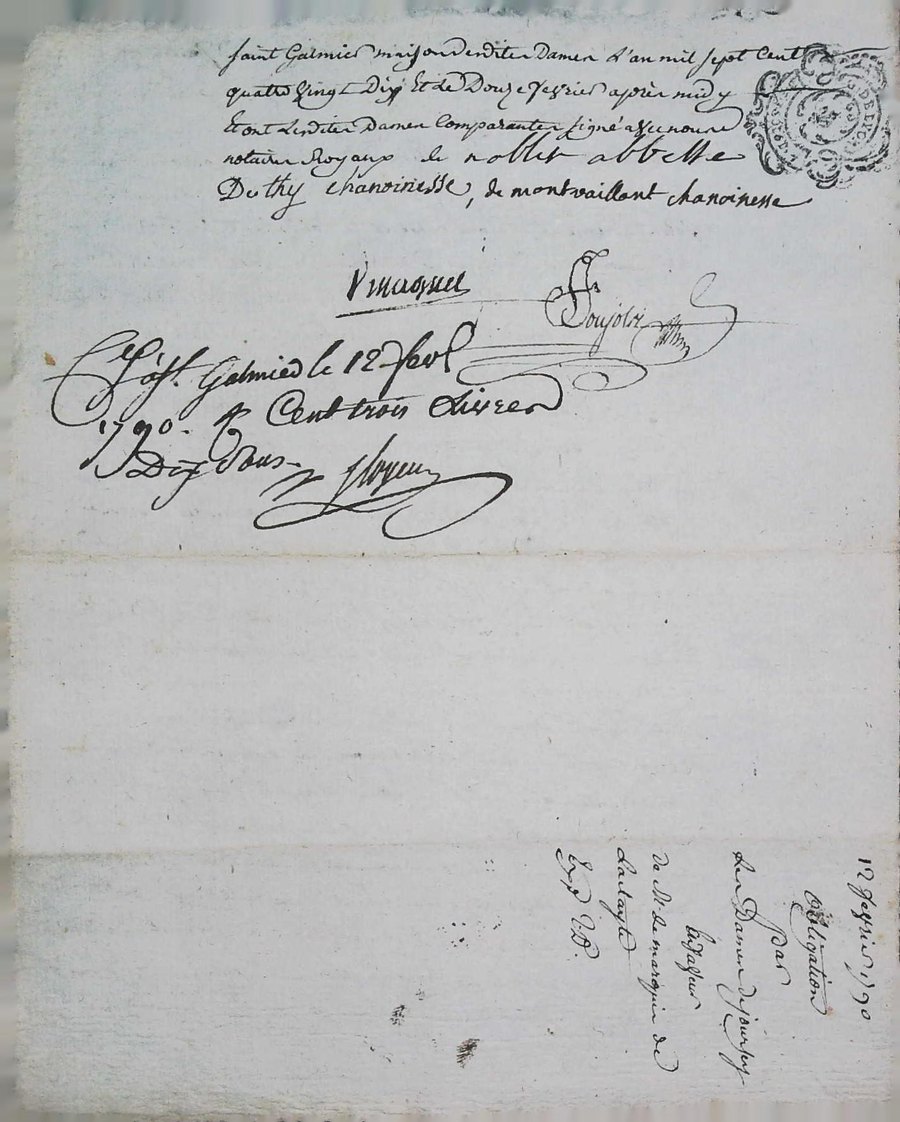 Saint Galmier maison desdites Dames L'an mil sept Cent
quatre Vingt Dix Et Le Douze fevrier après midy
Et ont Lesdites Dames Comparantes signé avec nous
notaires Royaux de nobles abbesse
De thy chanoinesse, de montvaillant chanoinesse
Soujolz
a St. Galmier le 12 fevr
1790. R Cent trois Livres
Dix Sous
12 fevrier 1790
obligation
par
Les Dames de joursey
En faveur
de Mr. Le marquis de